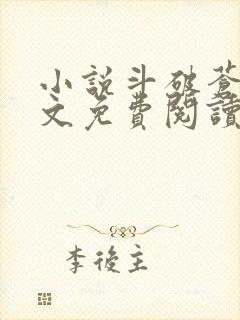 小説斗破蒼
文免費閱讀
李後主